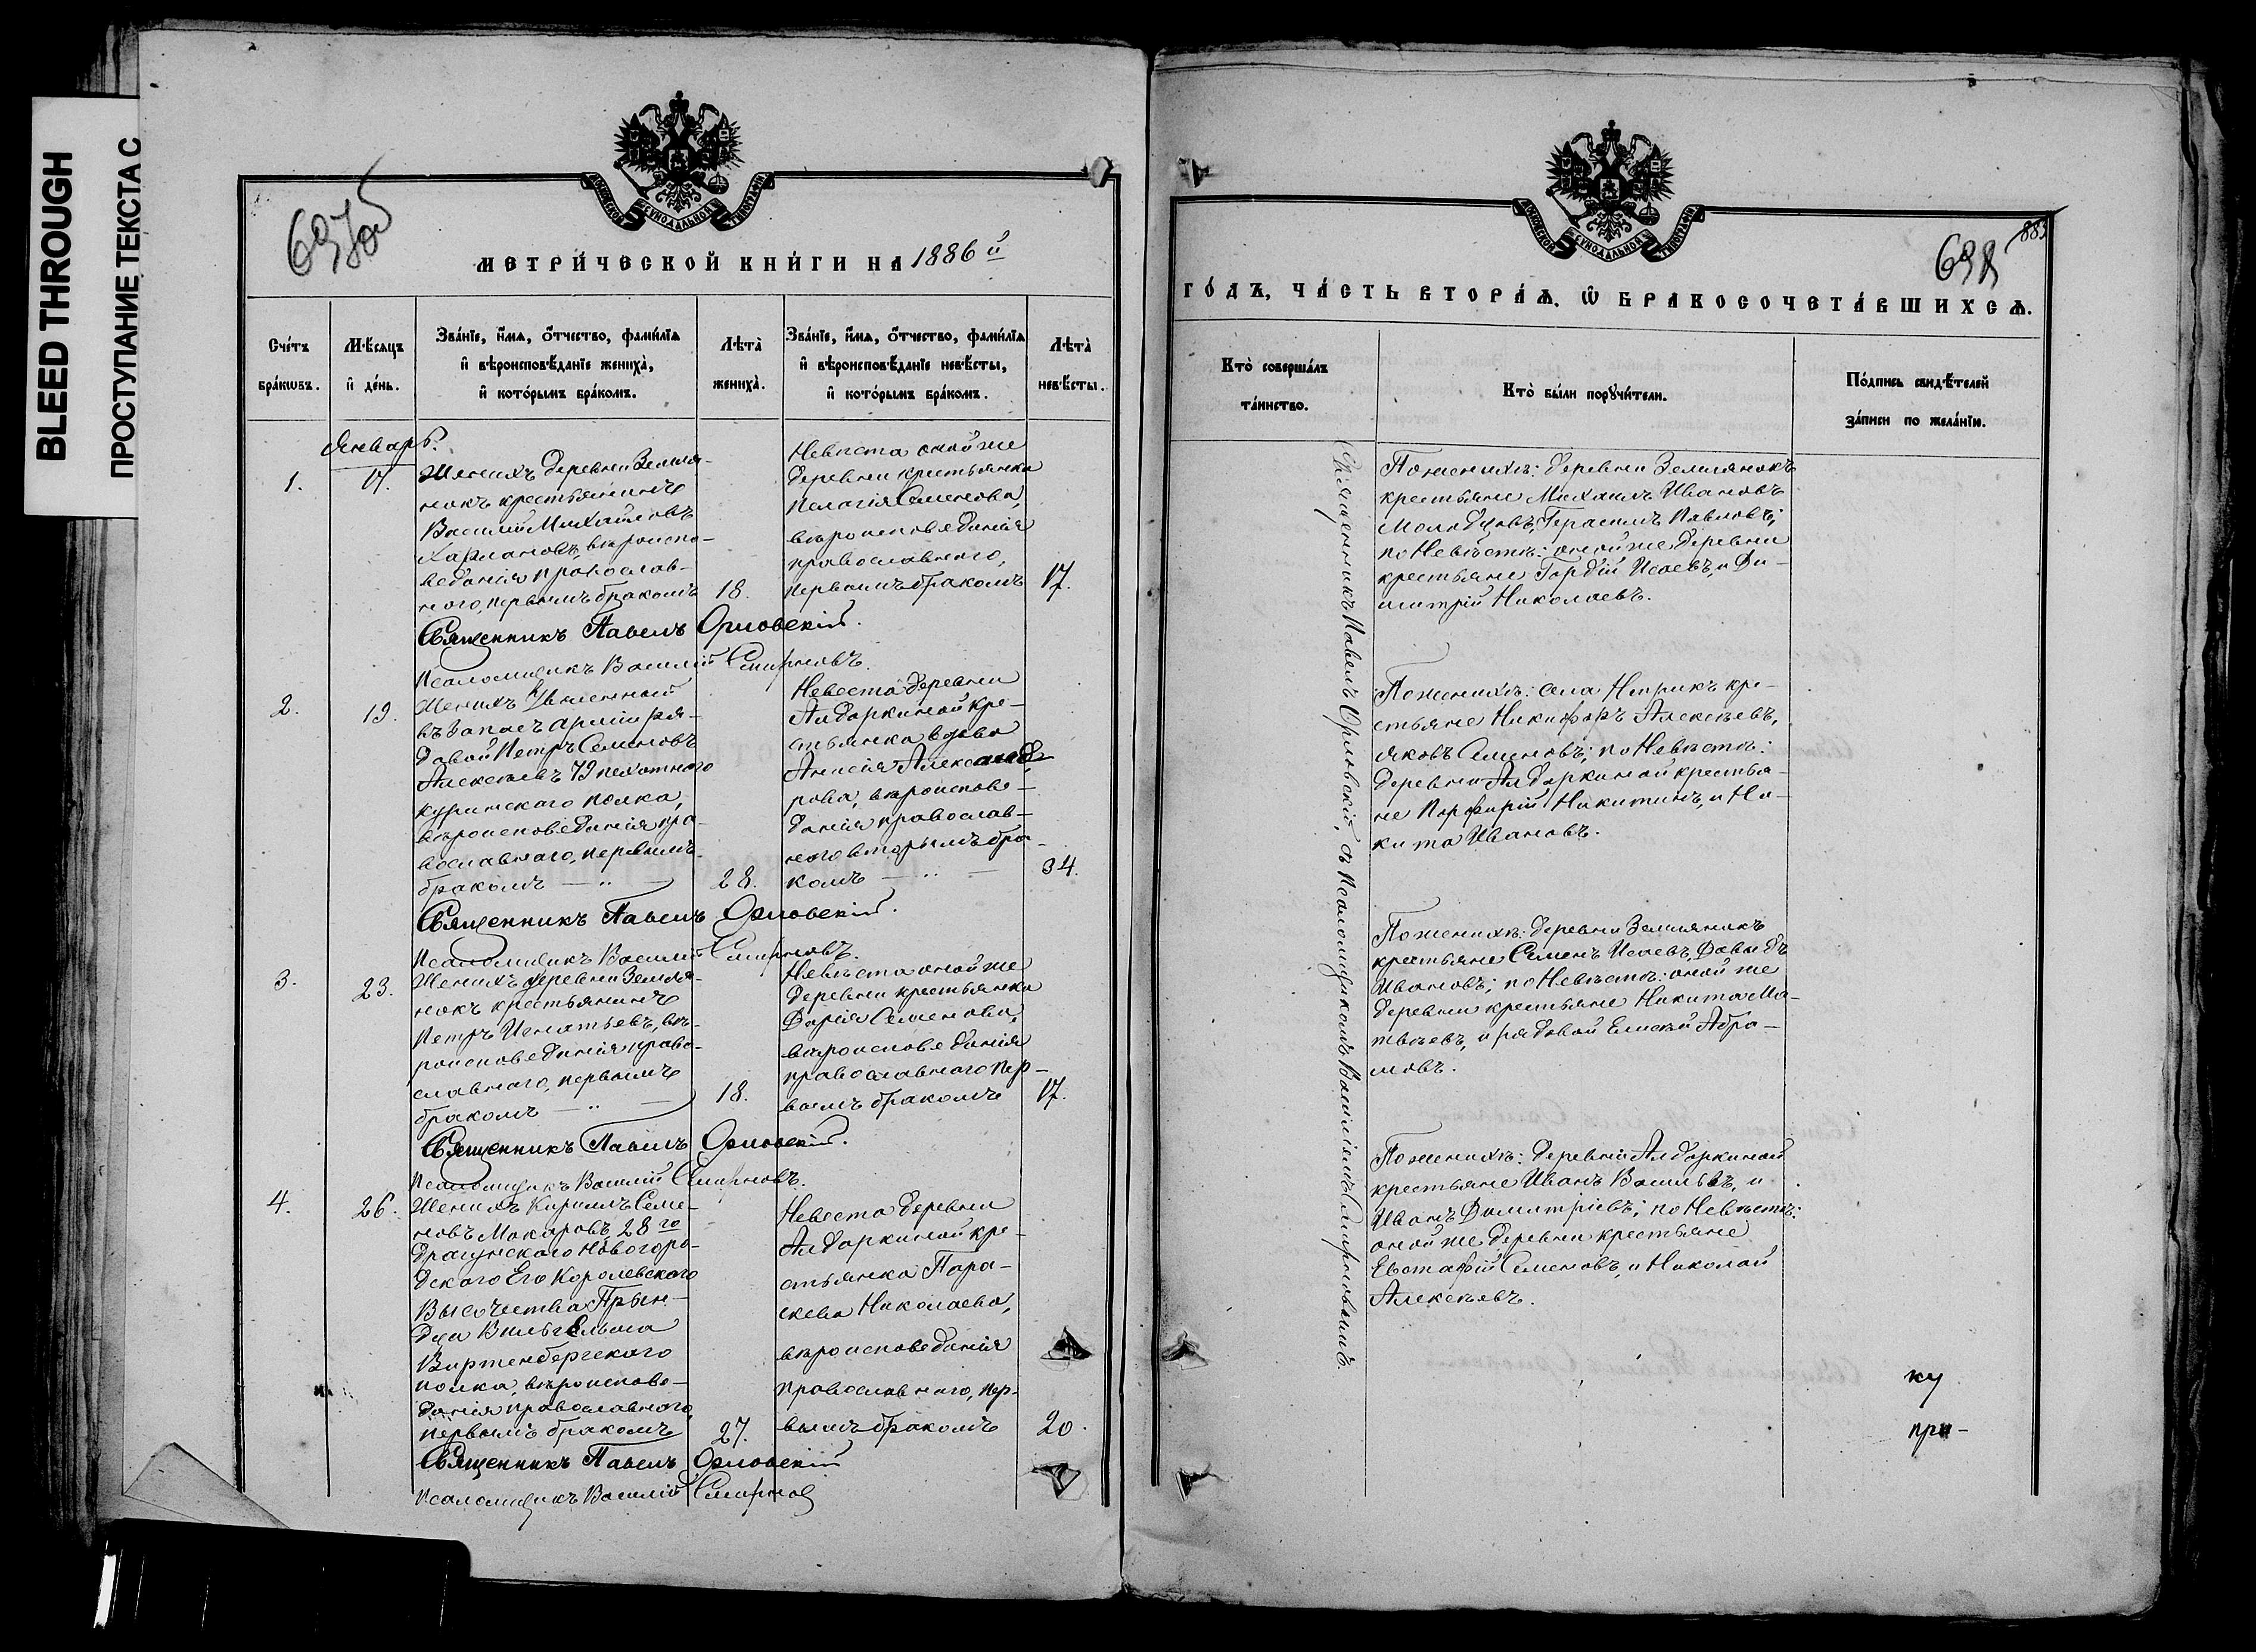 BLEED THROUGH
ПРОСТУПАНИЕ ТЕКСТА С
МОСКОВСКОЙ СѴНОДАЛЬНОЙ ТИПОГРАФІИ
697об
МЕТРИЧЕСКОЙ КНИГИ НА 1886й
Счетъ браковъ.
Мѣсяцъ и день.
Званіе, имя, отчество, фамилія и вѣроисповѣданіе жениха, и которымъ бракомъ.
Лѣта жениха.
Званіе, имя, отчество, фамилія и вѣроисповѣданіе невѣсты, и которымъ бракомъ.
Лѣта невѣсты.
Январь.
1.
17.
Женихъ деревни Земля-
нокъ крестьянинъ
Василій Михайловъ
вѣроиспо-
веданія православ-
ного, первымъ бракомъ
18.
Невѣста оной же
деревни крестьянка
Пелагія Семенова,
вѣроисповеданія
православного,
первымъ бракомъ
17.
Священникъ Павелъ Орловскій.
Псаломщикъ Василій Смирновъ.
2.
19.
Женихъ Уволенный
въ запасъ арміи ря-
довой Петръ Семеновъ
Алексѣевъ 79 пехотного
куринского полка,
вѣроисповеданія пра-
вославного, первымъ
бракомъ — „ —
28.
Невеста деревни
Алдаркиной кре-
стьянка вдова
Анисія Александ-
рова, вѣроиспове-
данія православ-
ного вторымъ бра-
комъ — „ —
34.
Священникъ Павелъ Орловскій.
Псаломщикъ Василій Смирновъ.
3.
23.
Женихъ деревни Земля-
нокъ крестьянинъ
Петръ Игнатьевъ, вѣ-
роисповеданія право-
славного, первымъ
бракомъ — „ —
18.
Невѣста оной же
деревни крестьянка
Дарія Семенова,
вѣроисповеданія
православного пер-
вымъ бракомъ
17.
Священникъ Павелъ Орловскій.
Псаломщикъ Василій Смирновъ.
4.
26.
Женихъ Кирилъ Семе-
новъ Макаровъ, 28го
драгунского Новогоро-
дского Его Королевского
Высочества Прын-
ца Вильгельма
Виртенбергского
полка, вѣроиспове-
данія православного,
первымъ бракомъ
27.
Невеста деревни
Алдаркиной кре-
стьянка Пара-
скева Николаева,
вѣроисповеданія
православного, пер-
вымъ бракомъ
20.
Священникъ Павелъ Орловскій
Псаломщикъ Василій Смирнов
МОСКОВСКОЙ СѴНОДАЛЬНОЙ ТИПОГРАФІИ
698
883
ГОДЪ, ЧАСТЬ ВТОРАЯ, Ѡ БРАКОСОЧЕТАВШИХСЯ.
Кто совершалъ таинство.
Кто были поручители.
Подпись свидѣтелей записи по желанію.
Священникъ Павелъ Орловскій, съ Псаломщикомъ Василіемъ Смирновымъ.
По женихѣ: деревни Землянокъ
крестьяне Михаилъ Ивановъ
Молодцовъ, Герасимъ Павловъ;
по Невѣстѣ: оной же деревни
крестьяне Гордій Исаевъ, и Ди-
митрій Николаевъ.
По женихѣ: села кре-
стьяне Никифоръ Алексѣевъ,
Яковъ Семеновъ; по Невѣстѣ:
деревни Алдаркиной крестья-
не Порфирій Никитинъ, и Ни-
кита Ивановъ.
По женихѣ: деревни Землянокъ
крестьяне Семенъ Исаевъ, Давыдъ
Ивановъ; по Невѣстѣ: оной же
деревни крестьяне Никита Ма-
твѣевъ, и рядовой Елисѣй Абра-
мовъ.
По женихѣ: деревни Алдаркиной
крестьяне Иванъ Васильевъ, и
Иванъ Димитріевъ; по Невѣстѣ:
оной же деревни крестьяне
Евстафій Семеновъ, и Николай
Алексѣевъ.
ку
при-